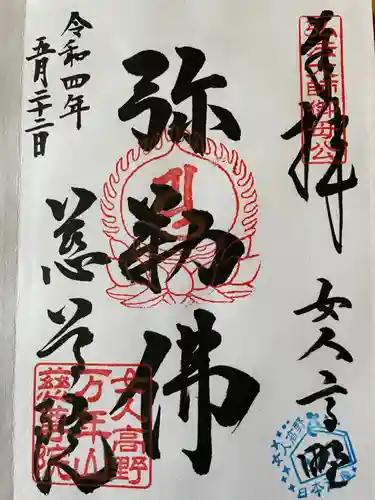 奉拝
弘法大師御母公
女人高野
女人高野
日本
弥勒佛
令和四年
五月二十二日
慈尊院
女人高野
万年山
慈尊院